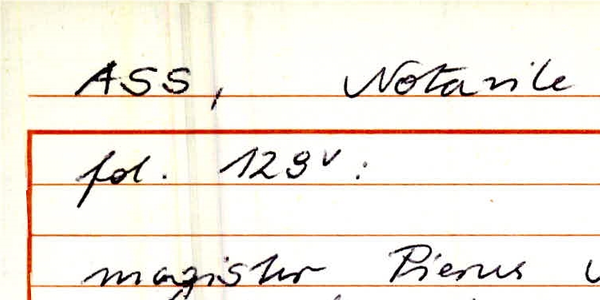 ASS, Notarile
fol. 129v:
magister Pierus